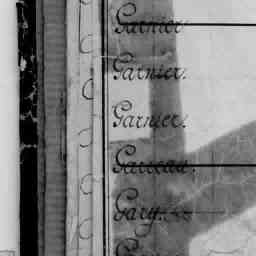 Garnier
Garnier.
Garnier.
Garreau.
Gary.